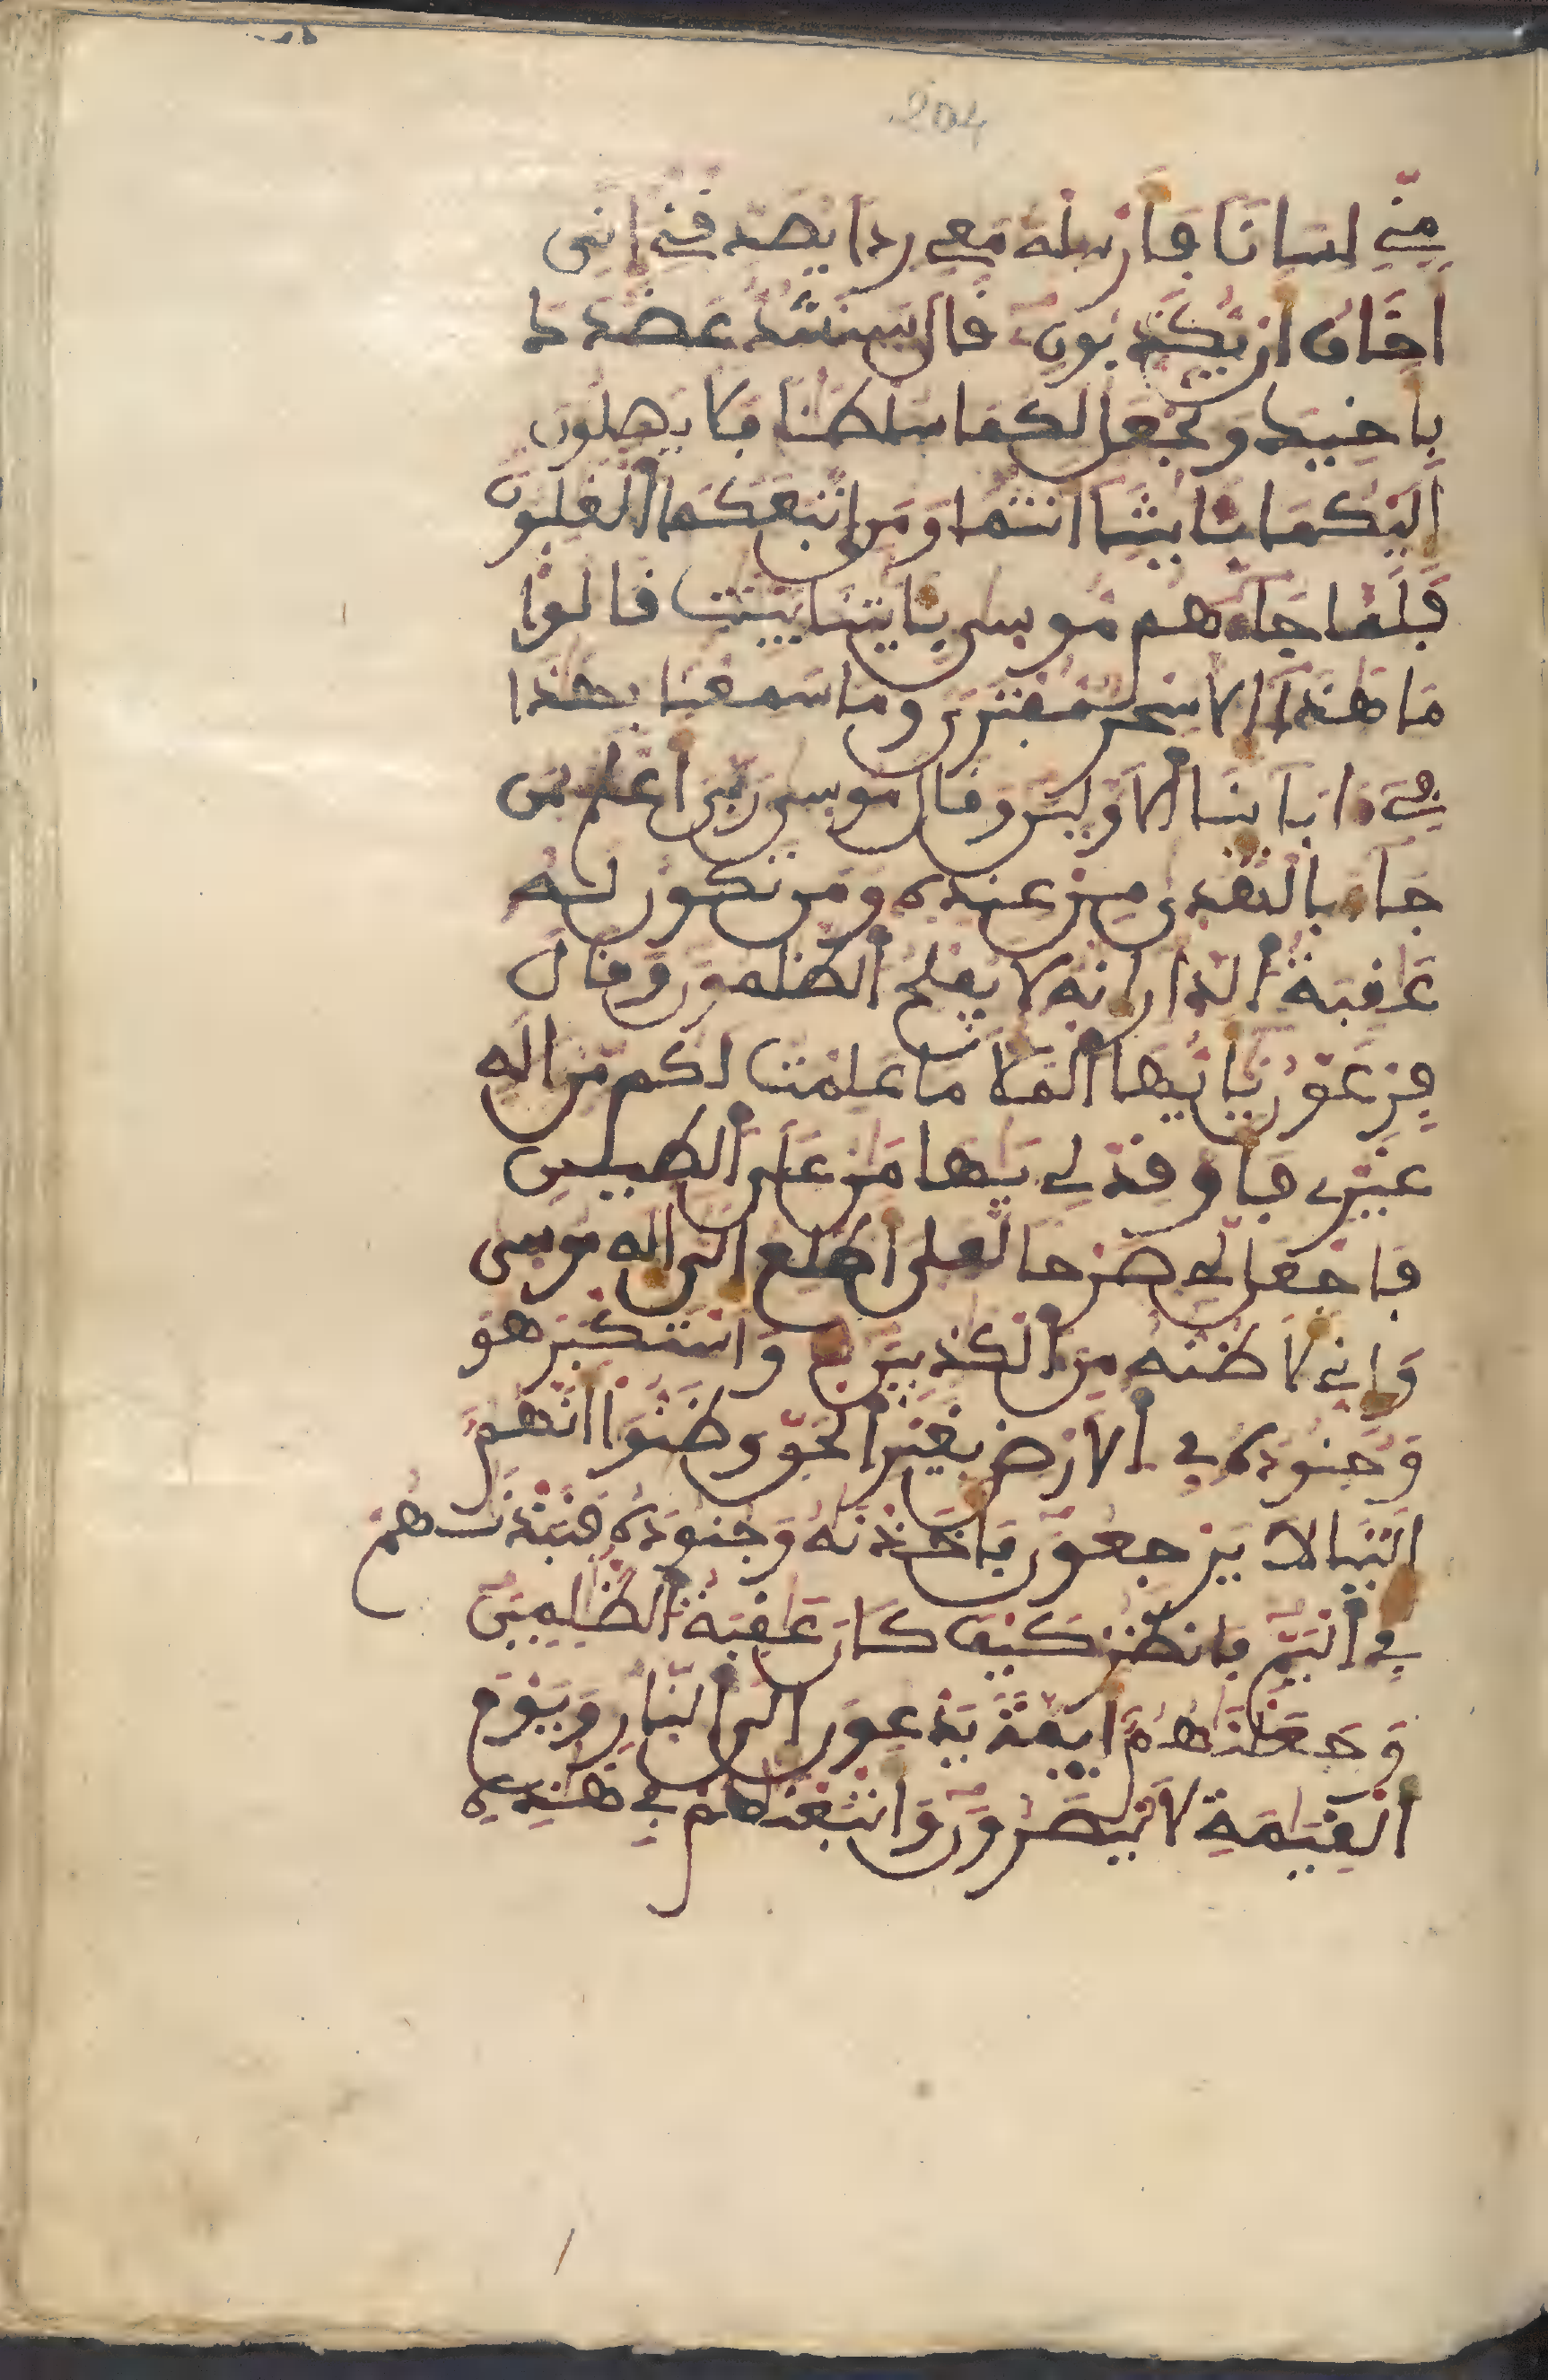 204
مِنِّے لِسَانًا فَأَرْسِلْهُ مَعِے رِدًا يُصَدِّقْنِے إِنِّى
أَخَافُ أَنْ يُّكَذِّبُونِ قَالَ سَنَشُدُّ عَضُدَكَ
بِأَخِيكَ وَنَجْعَلُ لَكُمَا سُلْطَنًا فَلَا يَصِلُونَ
إِلَيْكُمَا بِـَٔايَتِنَا أَنتُمَا وَمَنِ اتَّبَعَكُمَا الْغَلِبُونَ
فَلَمَّا جَآءَهُم مُّوسَى بِـَٔايَتِنَا بَيِّنَتٍ قَالُوا
مَا هَذَا إِلَّا سِحْرٌ مُّفْتَرًى وَمَا سَمِعْنَا بِهَذَا
فِے ءَابَآئِنَا الْأَوَّلِينَ وَقَالَ مُوسَى رَبِّىَ أَعْلَمُ بِمَن
جَآءَ بِالْهُدَى مِنْ عِندِهِ وَمَن تَكُونُ لَهُ
عَقِبَةُ الدَّارِ إِنَّهُ لَا يُفْلِحُ الظَّلِمُونَ وَقَالَ
فِرْعَوْنُ يَأَيُّهَا الْمَلَأُ مَا عَلِمْتُ لَكُم مِّنْ إِلَهٍ
غَيْرِے فَأَوْقِدْ لِے يَهَامَنُ عَلَى الطِّينِ
فَاجْعَل لِّے صَرْحًا لَّعَلِّى أَطَّلِعُ إِلَى إِلَهِ مُوسَى
وَإِنِّے لَأَظُنُّهُ مِنَ الْكَذِبِينَ وَاسْتَكْبَرَ هُوَ
وَجُنُودُهُ فِے الْأَرْضِ بِغَيْرِ الْحَقِّ وَظَنُّوا أَنَّهُمْ
إِلَيْنَا لَا يَرْجِعُونَ فَأَخَذْنَهُ وَجُنُودَهُ فَنَبَذْنَهُمْ
فِے الْيَمِّ فَانظُرْ كَيْفَ كَانَ عَقِبَةُ الظَّلِمِينَ
وَجَعَلْنَهُمْ أَيِمَّةً يَدْعُونَ إِلَى النَّارِ وَيَوْمَ
الْقِيَمَةِ لَا يُنصَرُونَ وَأَتْبَعْنَهُمْ فِے هَذِهِ